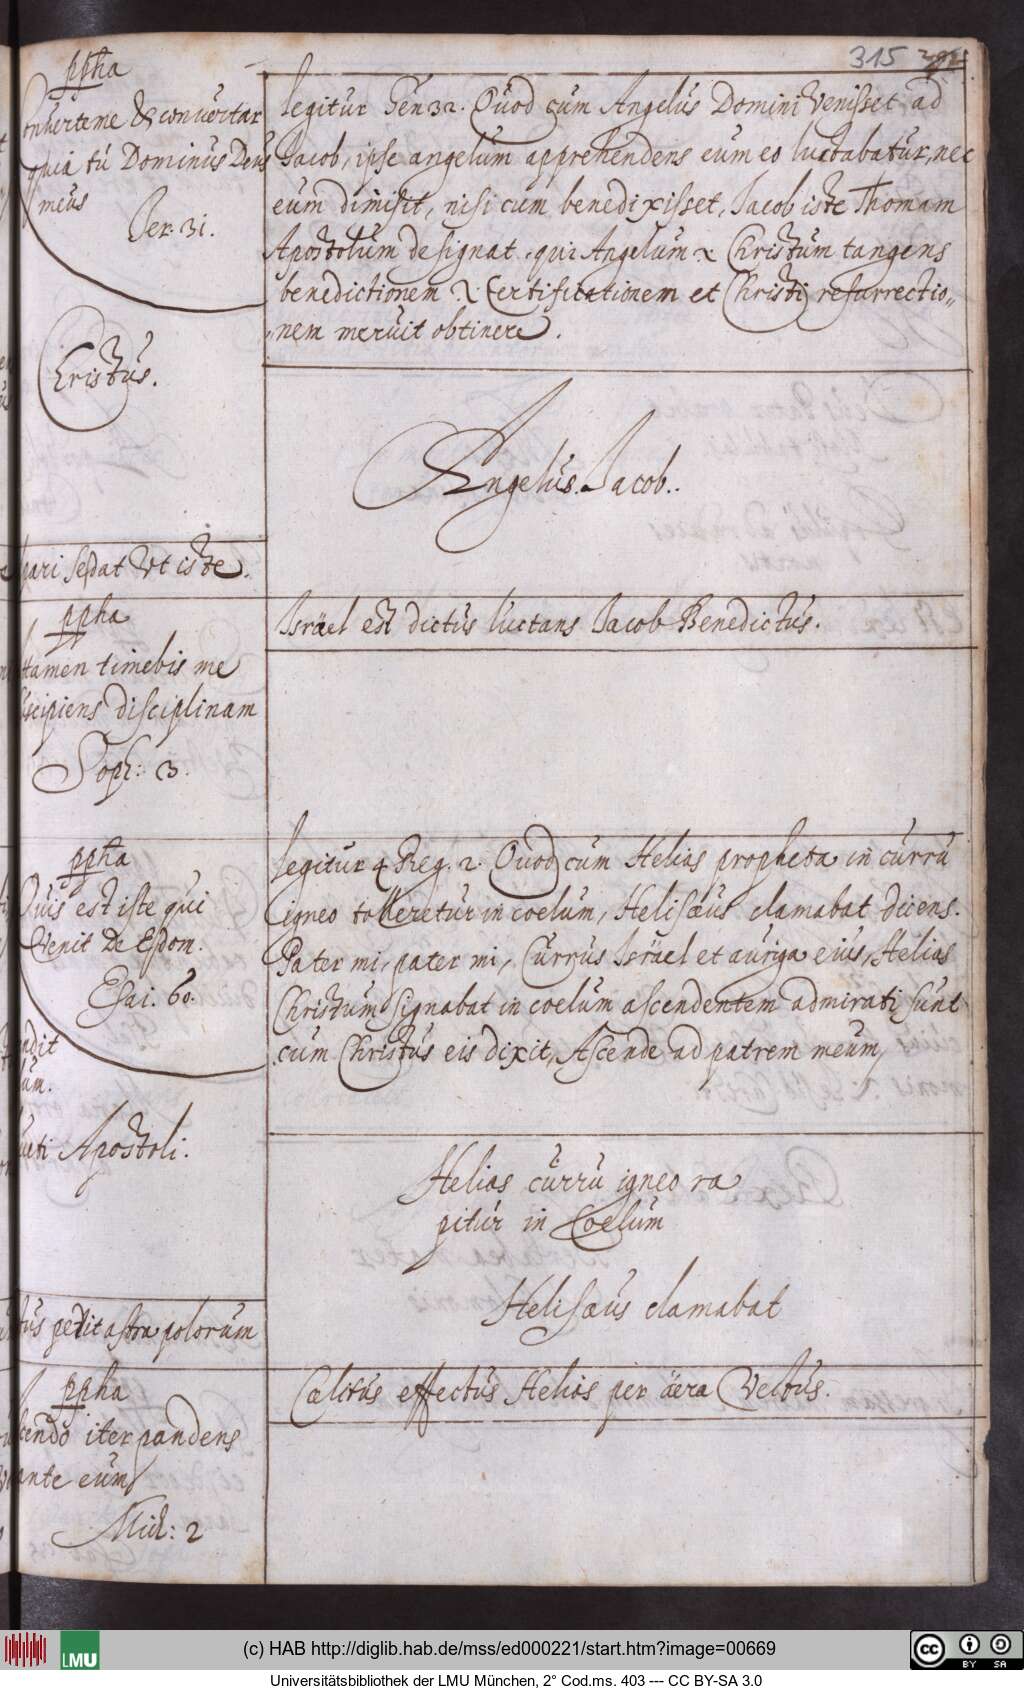 315
ppha
Converteme & convertar
quia tú Dominus Deus
meus
Jer. 31.
Cristus.
pari sedat Vt iste.
ppha
tamen timebis me
scipiens disciplinam
Soph: 3.
ppha
Quis est iste qui
Venit De Esdom.
Esai. 60.
ndit
um.
Apostoli.
tus petit astra polorum
ppha
cendo iter pandens
ante eum
Mich: 2
legitur Gen 32. Quod cum Angelus Domini venisset ad
Jacob, ipse angelum apprehendens cum eo luctabatur, nec
eum dimisit, nisi cum benedixisset, Jacob iste Thomam
Apostolum designat, qui Angelum .i. Christum tangens
benedictionem .i. Certificationem et Christi resurrectio„
nem meruit obtinere.
Angelus. Jacob..
Israel est dictus luctans Jacob Benedictus.
legitur 4 Reg. 2. Quod cum Helias propheta in curru
igneo tolleretur in coelum, Helisæus clamabat dicens.
Pater mi, pater mi, Currus Israel et auriga eius, Helias
Christum signabat in coelum ascendentem admirati sunt
cum Christus eis dixit, Ascende ad patrem meum,
Helias curru igneo ra
pitúr in Coelum
Helisæus clamabat
Cælitus effectus Helias per äera Vectus.
(c) HAB http://diglib.hab.de/mss/ed000221/start.htm?image=00669
LMU
cc BY SA
Universitätsbibliothek der LMU München, 2° Cod.ms. 403 --- CC BY-SA 3.0